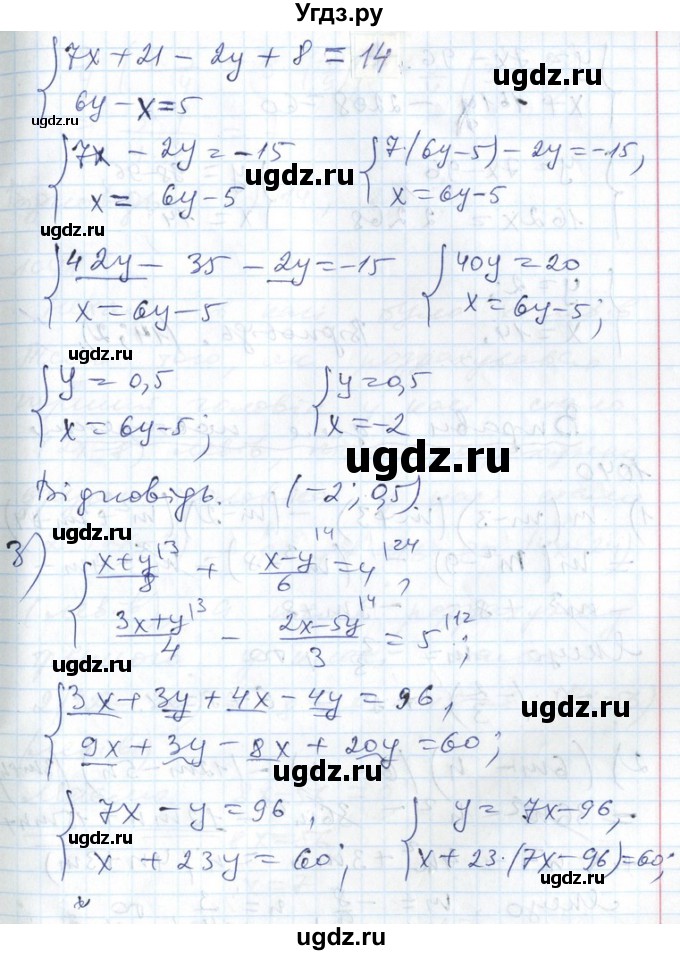 Угдз.ру
{7x + 21 - 2y + 8 = 14
6y - x = 5
ugdz.ru
ugdz.ru
{7x - 2y = -15
x = 6y - 5
{7·(6y-5) - 2y = -15,
x = 6y-5
ugdz.ru
ugdz.ru
ugdz.ru
{42y - 35 - 2y = -15
x = 6y - 5
{40y = 20
x = 6y-5;
ugdz.ru
ugdz.ru
ugdz.ru
{y = 0,5
x = 6y-5;
{y = 0,5
x = -2
ugdz.ru
Відповідь. (-2; 0,5).
ugdz.ru
3) {(x+y)/8 |3 + (x-y)/6 |4 = 4 |24,
(3x+y)/4 |3 - (2x-5y)/3 |4 = 5 |12;
ugdz.ru
ugdz.ru
{3x + 3y + 4x - 4y = 96,
9x + 3y - 8x + 20y = 60;
ugdz.ru
ugdz.ru
{7x - y = 96,
x + 23y = 60;
{y = 7x-96,
x + 23·(7x-96) = 60;
ugdz.ru
ugdz.ru
ugdz.ru